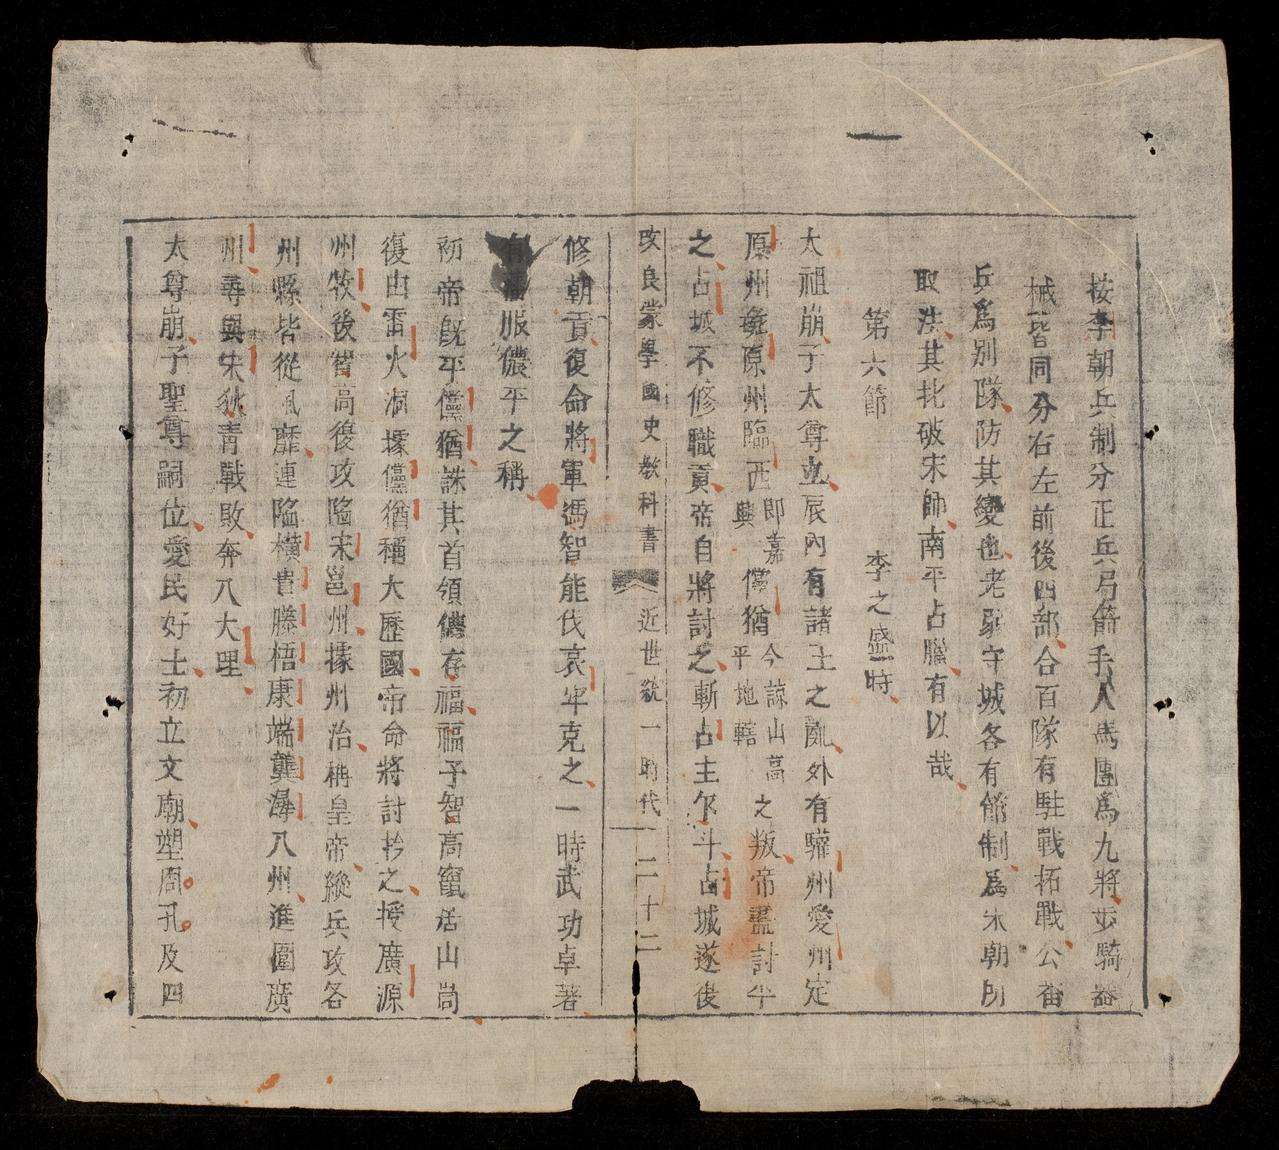 按李朝兵制分正兵弓箭手人馬團爲九將步騎器
械皆同分右左前後四部合百隊有駐戰拓戰公畨
兵爲別隊防其變也老弱守城各有節制爲宋朝所
取法其抗破宋師南平占臘有以哉
第六節 李之盛時
太祖崩子太尊立辰內有諸王之亂外有驩州愛州定
原州羗原州臨西 即嘉興 儻猶 今諒山高平地轄 之叛帝盡討平
之占城不修職貢帝自將討之斬占主乍斗占城遂復
改良蒙學國史教科書 近世統一時代 二十二
修朝貢復命將軍馮智能伐哀牢克之一時武功卓著
有 服儂平之稱
初帝既平儻猶誅其首領儂存福福子智高竄活山峝
復由雷火洞據儻猶稱大歷國帝命將討於之授廣源
州牧後智高復攻陷宋邕州據州治稱皇帝縱兵攻各
州縣皆從風靡連陷橫貴藤梧康端龔潯八州進圍廣
州尋與宋狄青戰敗奔入大理
太尊崩子聖尊嗣位愛民好士初立文廟塑周孔及四